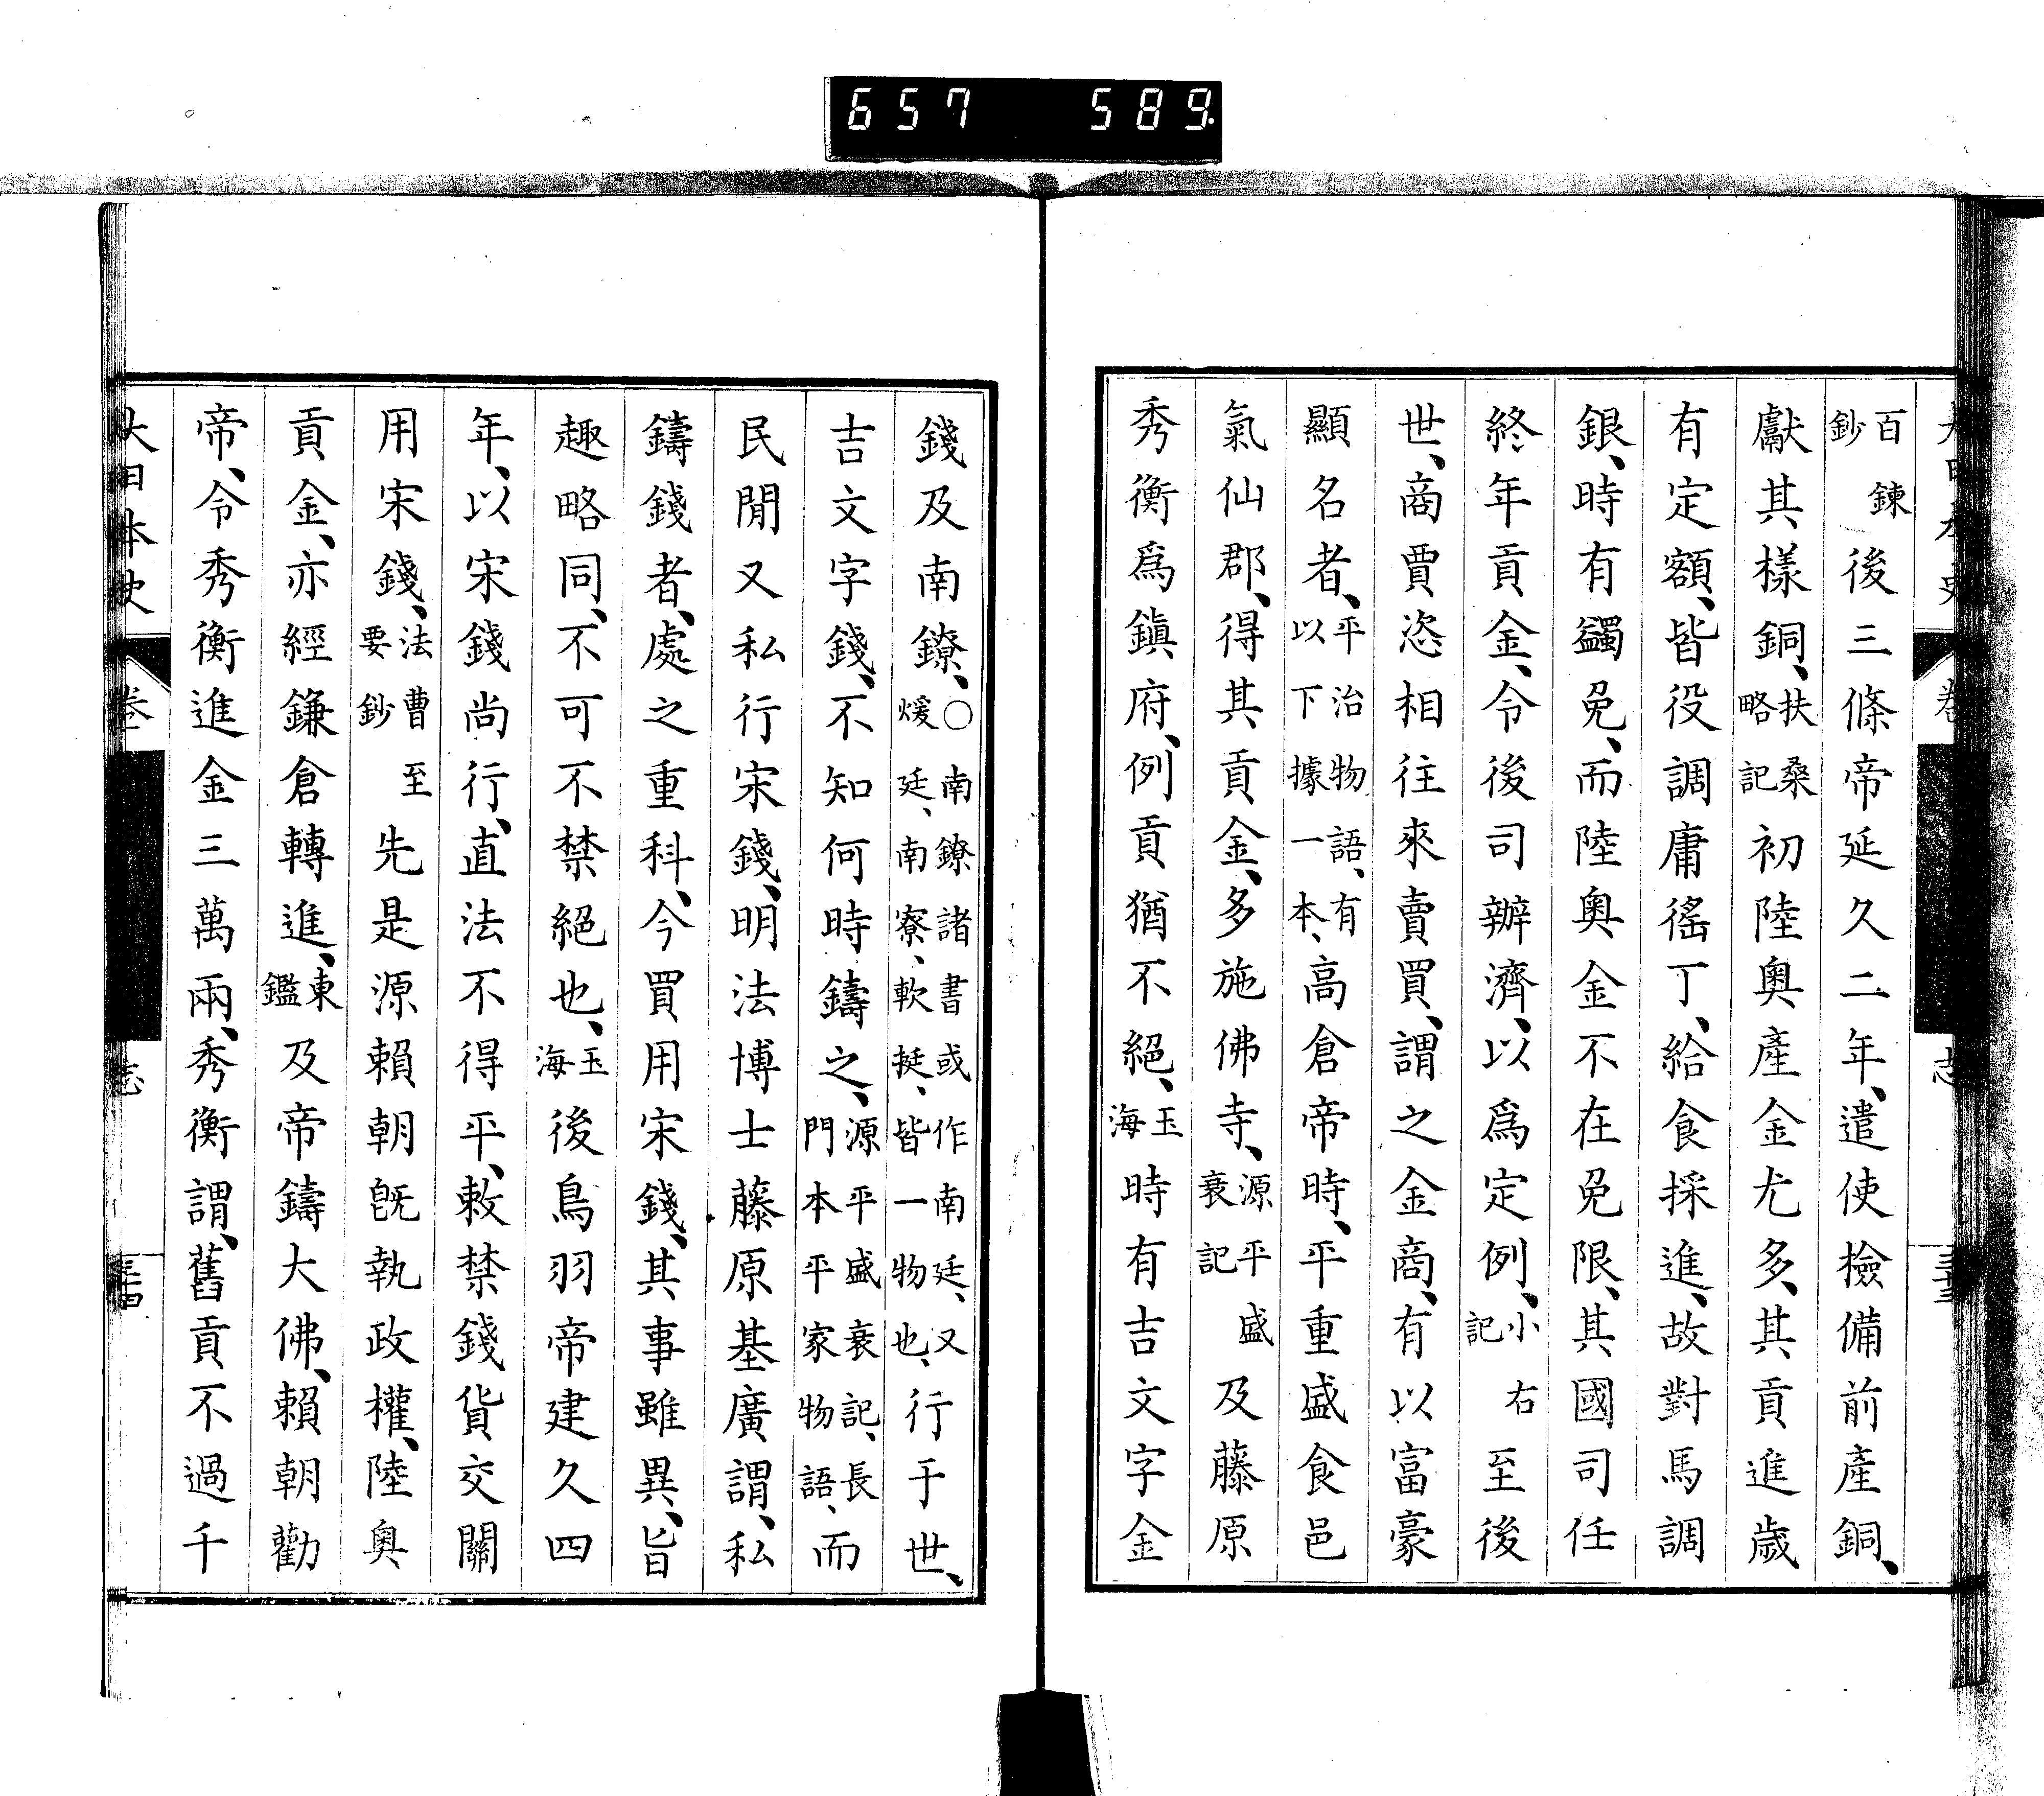 657 589
百鍊鈔後三條帝延久二年、遣使檢備前產銅、
獻其樣銅、扶桑略記初陸奧產金尤多、其貢進歲
有定額、皆役調庸徭丁、給食採進、故對馬調
銀、時有蠲免、而陸奧金不在免限、其國司任
終年貢金、令後司辦濟、以爲定例、小右記至後
世、商賈恣相往來賣買、謂之金商、有以富豪
顯名者、平治物語、有以下據一本、高倉帝時、平重盛食邑
氣仙郡、得其貢金、多施佛寺、源平盛衰記及藤原
秀衡爲鎭府、例貢猶不絕、玉海時有吉文字金
錢及南鐐、○南鐐諸書或作南廷、又煖廷、南寮、軟挺、皆一物也、行于世、
吉文字錢、不知何時鑄之、源平盛衰記、長門本平家物語、而
民閒又私行宋錢、明法博士藤原基廣謂、私
鑄錢者、處之重科、今買用宋錢、其事雖異、旨
趣略同、不可不禁絕也、玉海後鳥羽帝建久四
年、以宋錢尚行、直法不得平、敕禁錢貨交關
用宋錢、法曹至要鈔先是源賴朝旣執政權、陸奧
貢金、亦經鎌倉轉進、東鑑及帝鑄大佛、賴朝勸
帝、令秀衡進金三萬兩、秀衡謂、舊貢不過千
大日本史 卷 志 三十四